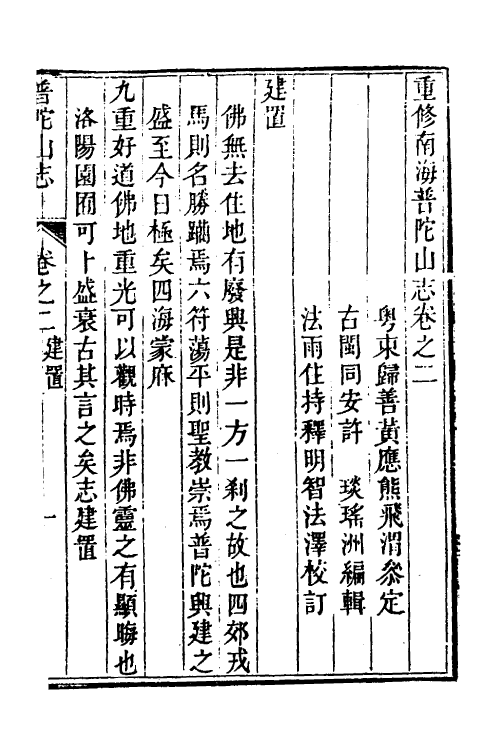 重修南海普陀山志卷之二
粵東歸善黃應熊飛渭叅定
古閩同安許　琰瑤洲編輯
法雨住持釋明智法澤校訂
建置
佛無去住地有廢興是非一方一刹之故也四郊戎
馬則名勝躪焉六符蕩平則聖教崇焉普陀興建之
盛至今日極矣四海蒙庥
九重好道佛地重光可以觀時焉非佛靈之有顯晦也
洛陽園囿可卜盛衰古其言之矣志建置
普陀山志　卷之二　建置　一